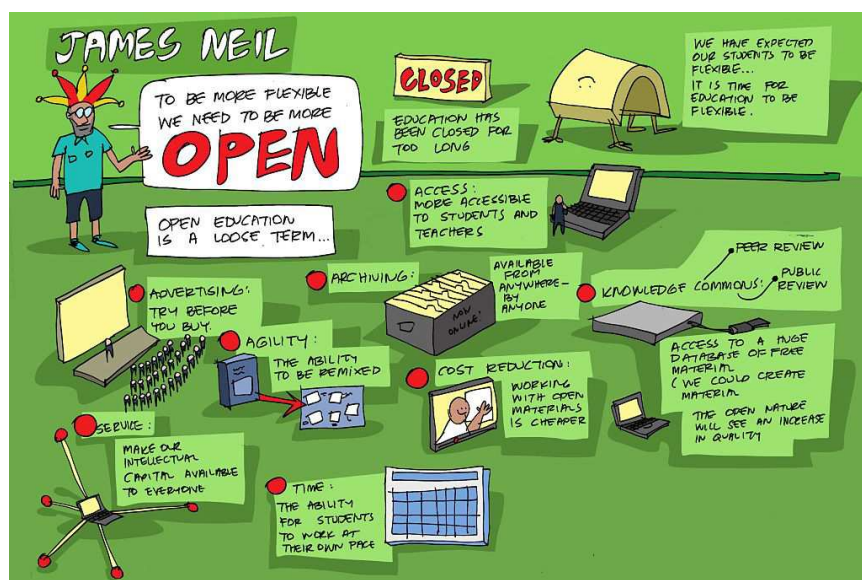 JAMES NEIL
TO BE MORE FLEXIBLE
WE NEED TO BE MORE
OPEN
OPEN EDUCATION
IS A LOOSE TERM...
CLOSED
EDUCATION HAS
BEEN CLOSED FOR
TOO LONG
WE HAVE EXPECTED
OUR STUDENTS TO BE
FLEXIBLE...
IT IS TIME FOR
EDUCATION TO BE
FLEXIBLE.
ACCESS:
MORE ACCESSIBLE
TO STUDENTS AND
TEACHERS
ADVERTISING:
TRY BEFORE
YOU BUY.
ARCHIVING:
NOW
ONLINE!
AVAILABLE
FROM
ANYWHERE-
BY
ANYONE
KNOWLEDGE COMMONS:
PEER REVIEW
PUBLIC
REVIEW
ACCESS TO A HUGE
DATABASE OF FREE
MATERIAL
(WE COULD CREATE
MATERIAL
THE OPEN NATURE
WILL SEE AN INCREASE
IN QUALITY
AGILITY:
THE ABILITY
TO BE REMIXED
COST REDUCTION:
WORKING
WITH OPEN
MATERIALS
IS CHEAPER
SERVICE:
MAKE OUR
INTELLECTUAL
CAPITAL AVAILABLE
TO EVERYONE
TIME:
THE ABILITY
FOR STUDENTS
TO WORK AT
THEIR OWN PACE